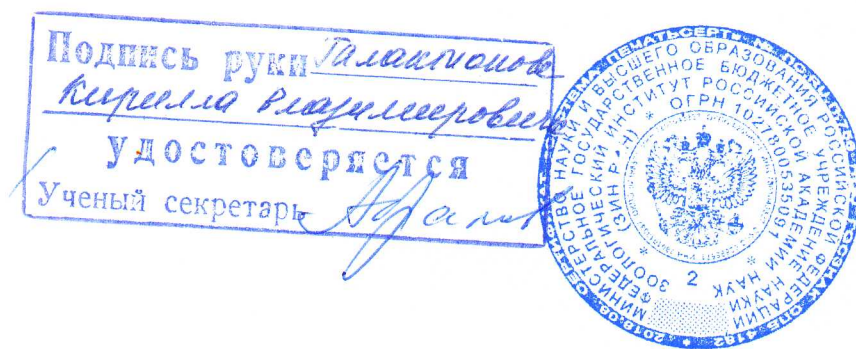 Подпись руки Галактионова
Кирилла Владимировича
удостоверяется
Ученый секретарь
МИНИСТЕРСТВО НАУКИ И ВЫСШЕГО ОБРАЗОВАНИЯ РОССИЙСКОЙ ФЕДЕРАЦИИ
ФЕДЕРАЛЬНОЕ ГОСУДАРСТВЕННОЕ БЮДЖЕТНОЕ УЧРЕЖДЕНИЕ НАУКИ
ЗООЛОГИЧЕСКИЙ ИНСТИТУТ РОССИЙСКОЙ АКАДЕМИИ НАУК
(ЗИН РАН) * ОГРН 1027800535091 *
2